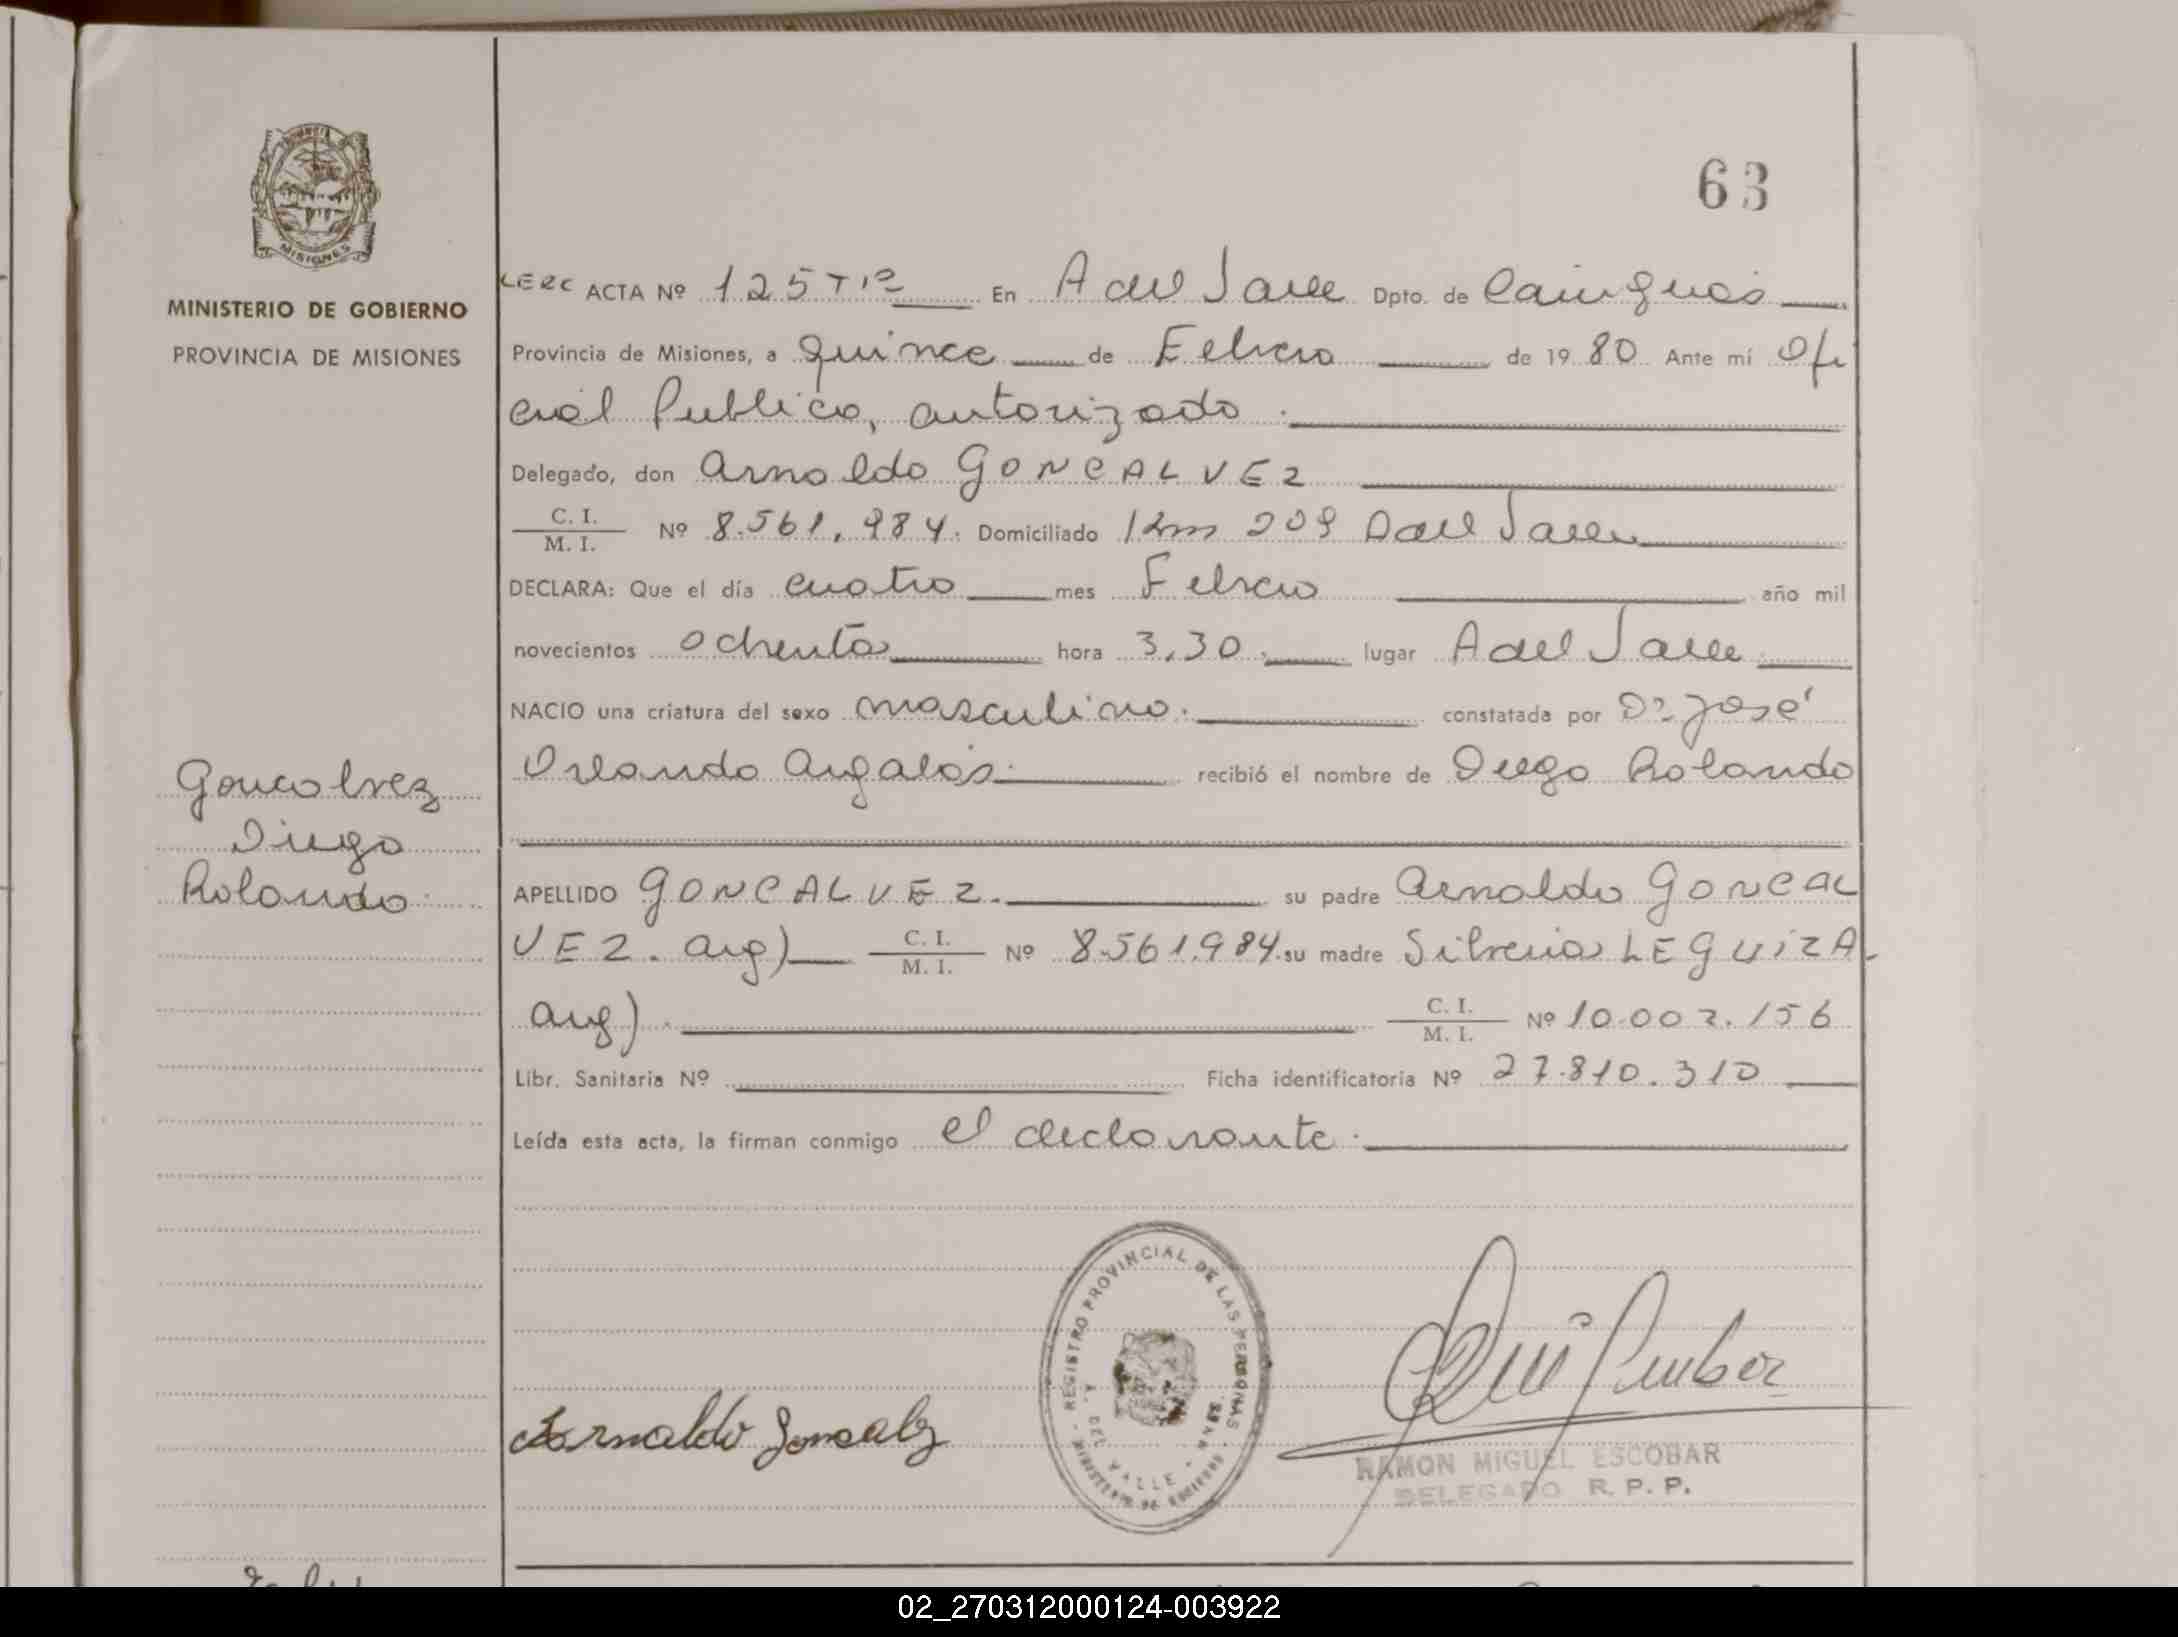 63
MINISTERIO DE GOBIERNO
PROVINCIA DE MISIONES
LERC ACTA Nº 125 Tº 1º En A del Valle Dpto. de Cainguás
Provincia de Misiones, a quince de Febrero de 1980 Ante mí Ofi
cial Publico, autorizado.
Delegado, don Arnoldo GONCALVEZ
C. I. / M. I. Nº 8.561.984. Domiciliado Km 209 A del Valle
DECLARA: Que el día cuatro mes Febrero año mil
novecientos ochenta hora 3,30. lugar A del Valle
NACIO una criatura del sexo masculino. constatada por Dr José
Orlando recibió el nombre de Diego Rolando
Goncalvez
Diego
Rolando
APELLIDO GONCALVEZ. su padre Arnoldo GONCAL
VEZ. arg) C. I. / M. I. Nº 8.561.984. su madre Silveria LEGUIZA
arg). C. I. / M. I. Nº 10.002.156
Libr. Sanitaria Nº Ficha identificatoria Nº 27.810.310
Leída esta acta, la firman conmigo el declarante.
REGISTRO PROVINCIAL DE LAS PERSONAS
A. DEL VALLE
MINISTERIO DE GOBIERNO
Arnaldo
RAMON MIGUEL ESCOBAR
DELEGADO R. P. P.
02_270312000124-003922